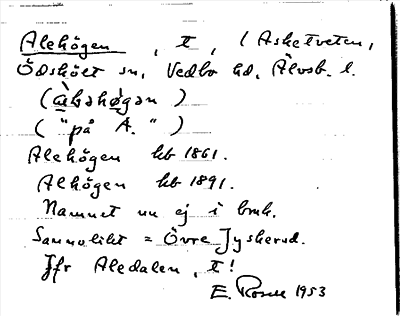 Alehögen, t, (Asketveten,
Ödskölt sn, Vedbo hd, Älvsb. l.
(
("på A.")
Alehögen kb 1861.
Alhögen kb 1891.
Namnet nu ej i bruk.
Sannolikt = Övre Jyskerud.
Jfr Aledalen, t!
E. Rosell 1953